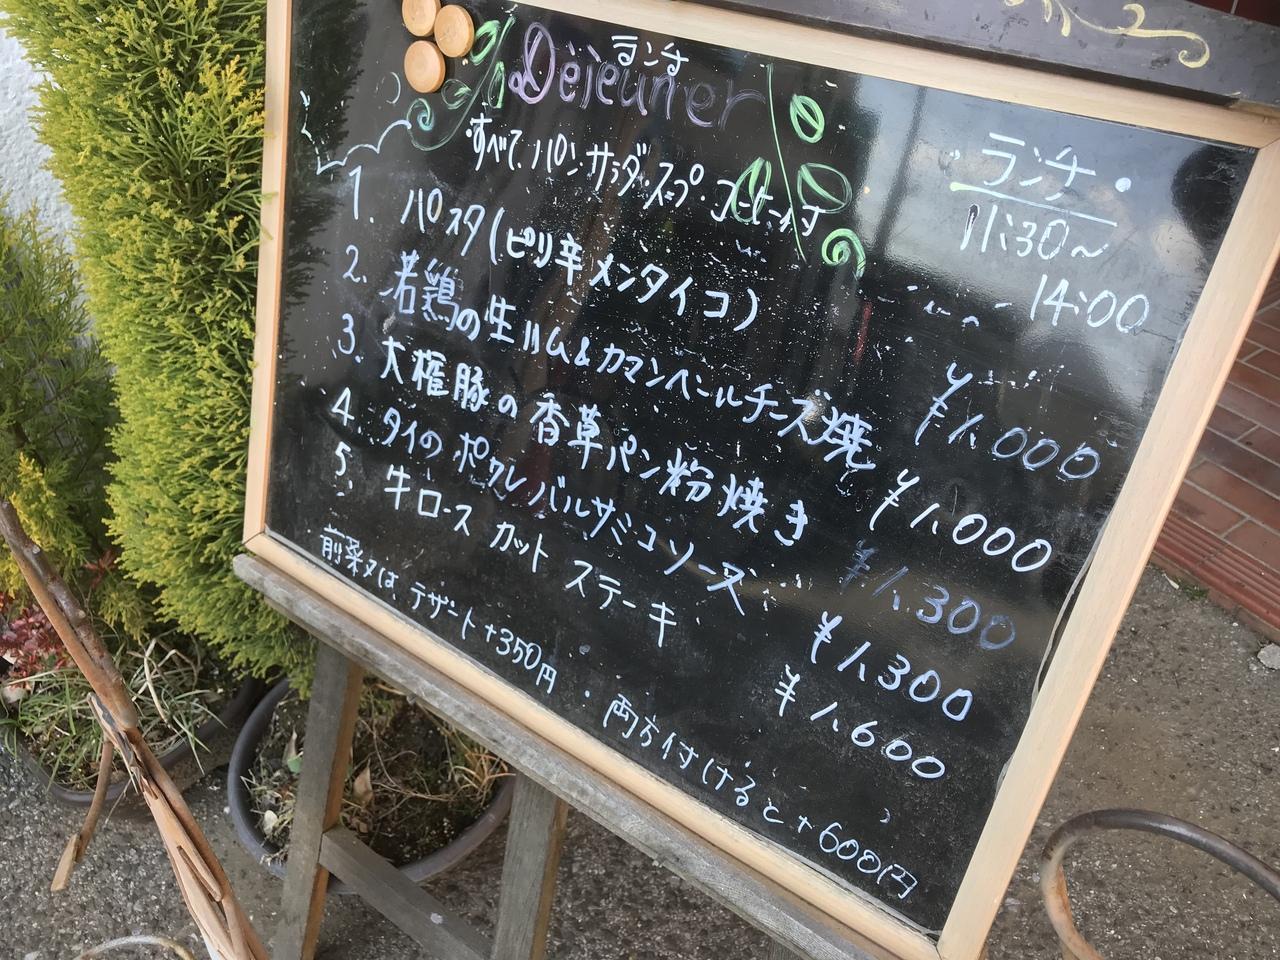 ランチ
Déjeuner
すべて パン・サラダ・スープ・コーヒー付
ランチ・
11:30~
14:00
1. パスタ(ピリ辛メンタイコ) ¥1,000
2. 若鶏の生ハム&カマンベールチーズ焼 ¥1,000
3. 大権豚の香草パン粉焼き ¥1,300
4. タイのポワレ バルサミコソース ¥1,300
5. 牛ロース カット ステーキ ¥1,600
前菜又は、デザート+350円・両方付けると+600円